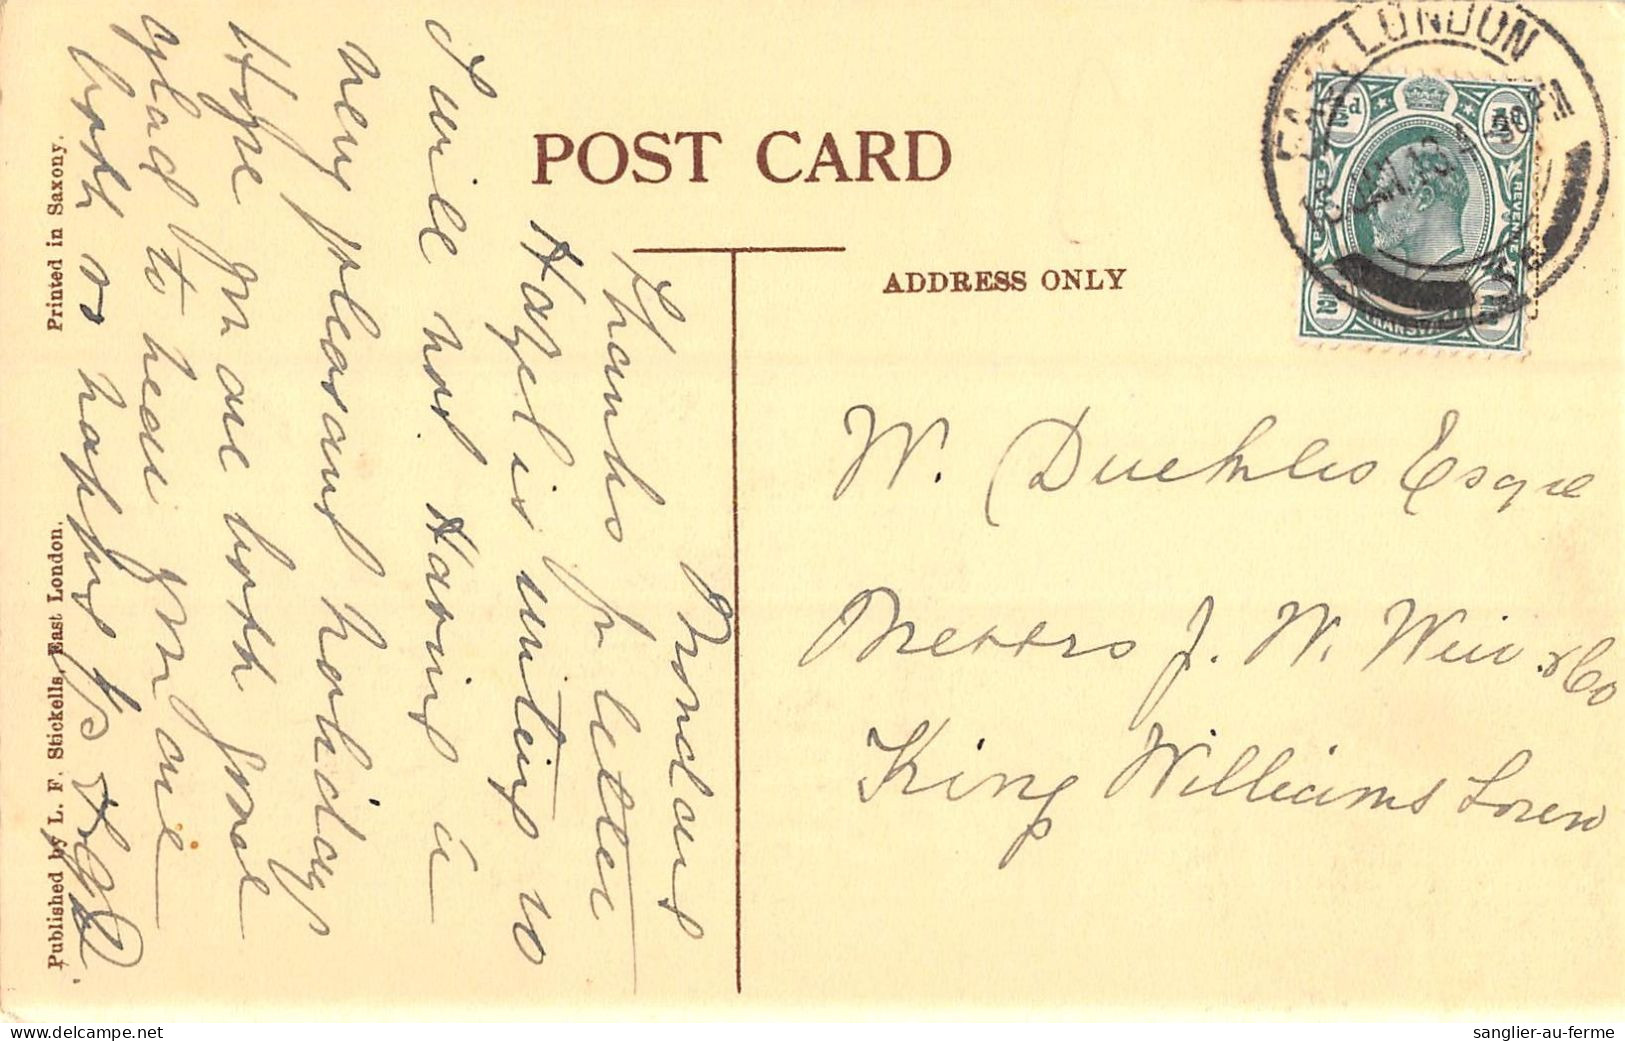 POST CARD
ADDRESS ONLY
Printed in Saxony.
Published by L. F. Stickells, East London.
EAST LONDON
Thanks for letter
Hazel is writing so
I will not Having a
very pleasant holiday
Hope you are both
glad to hear you are
both so happy
W. Esqre
Messrs J. W. Weir & Co
King Williams Town
delcampe.net
sanglier-au-ferme